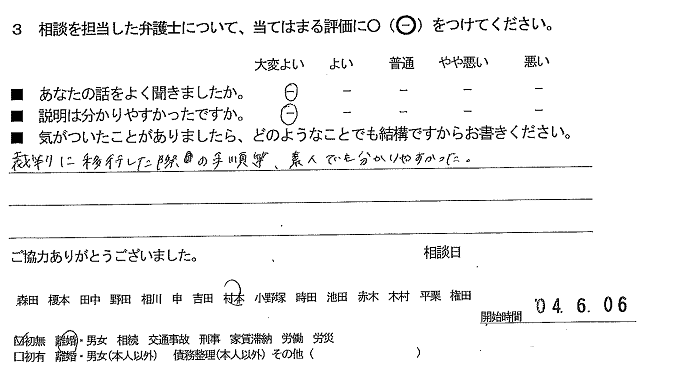 3 相談を担当した弁護士について、当てはまる評価に○（⊖）をつけてください。
大変よい よい 普通 やや悪い 悪い
■ あなたの話をよく聞きましたか。 ⊖ − − − −
■ 説明は分かりやすかったですか。 ⊖ − − − −
■ 気がついたことがありましたら、どのようなことでも結構ですからお書きください。
裁判に移行した際の手順等、素人でも分かりやすかった。
ご協力ありがとうございました。 相談日
森田 榎本 田中 野田 相川 申 吉田 村本 小野塚 時田 池田 赤木 木村 平栗 権田
開始時間 '04.6.06
☑初無 離婚・男女 相続 交通事故 刑事 家賃滞納 労働 労災
□初有 離婚・男女(本人以外) 債務整理(本人以外) その他（ ）